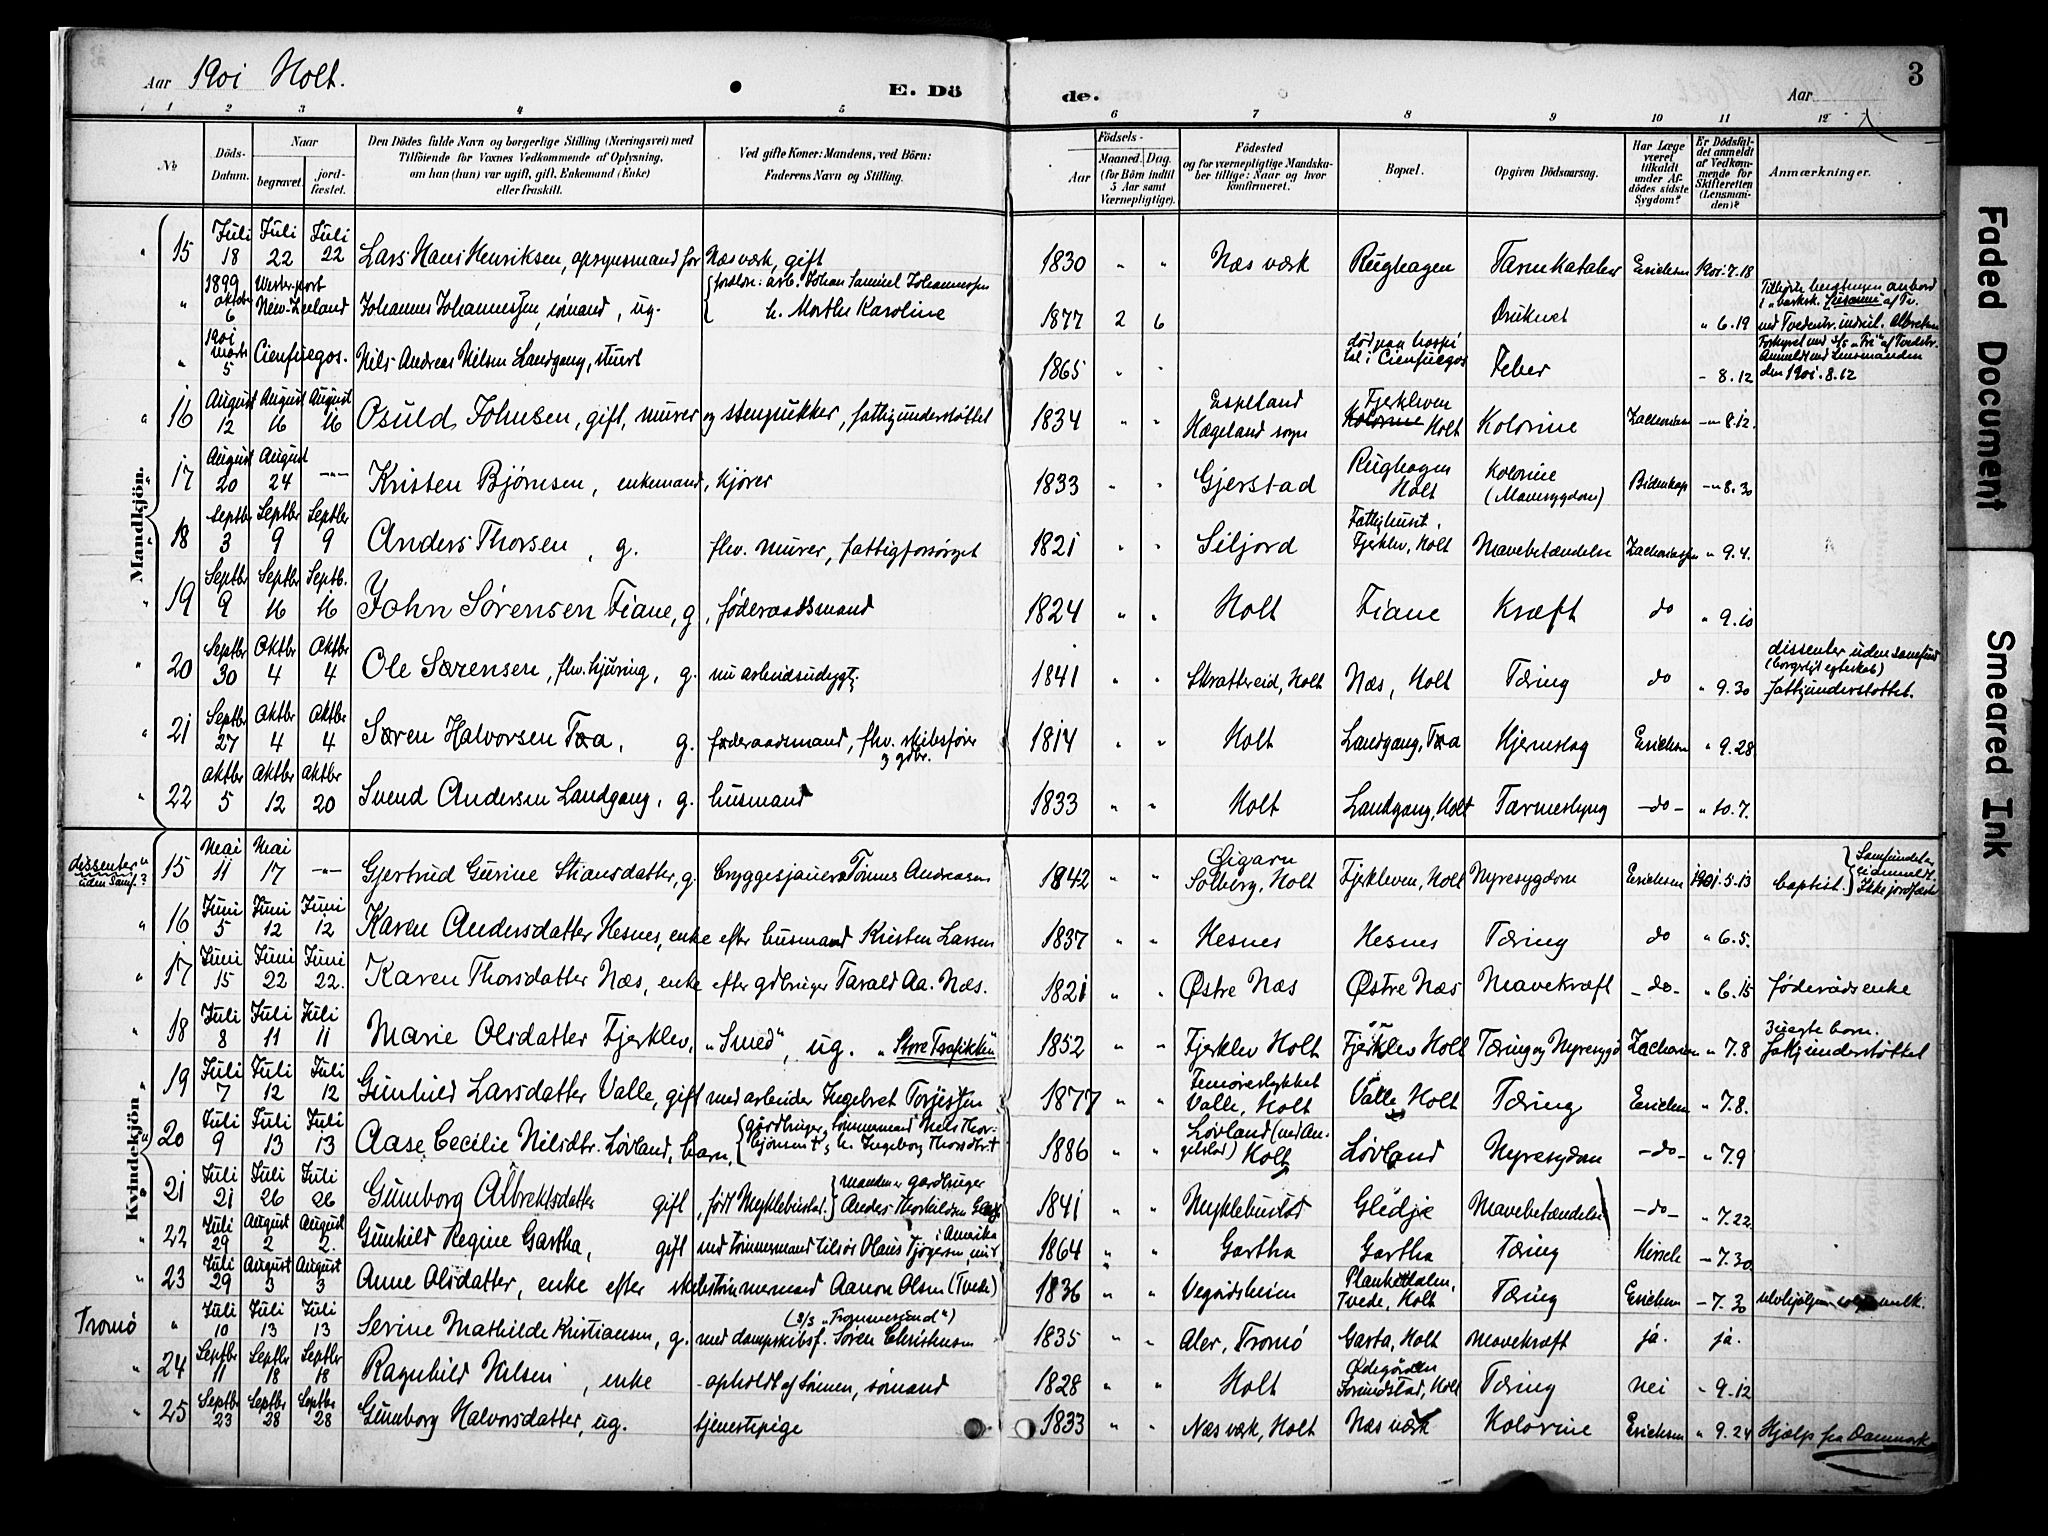 Aar 1901 Holt. E. Dö de. Aar 3
1 2 3 4 5 6 7 8 9 10 11 12
No Döds-Datum. Naar begravet. jord-fæstet. Den Dödes fulde Navn og borgerlige Stilling (Næringsvei) med Tilföiende for Voxnes Vedkommende af Oplysning, om han (hun) var ugift, gift, Enkemand (Enke) eller fraskilt. Ved gifte Koner: Mandens, ved Börn: Faderens Navn og Stilling. Födsels- Aar Maaned. Dag. (for Börn indtil 5 Aar samt Værnepligtige). Födested og for værnepligtige Mandska-ber tillige: Naar og hvor konfirmeret. Bopæl. Opgiven Dödsaarsag. Har Læge været tilkaldt under Af-dödes sidste Sygdom? Er Dödsfal-det anmeldt af Vedkom-mende for Skifteretten (Lensman-den)? Anmærkninger.
Mandkjön.
" 15 Juli 18 Juli 22 Juli 22 Lars Hans Henriksen, opsynsmand for Næs værk, gift 1830 " " Næs værk Rughagen Tarmkatahr Erichsen 1901.7.18
" 1899 oktbr 6 Westerport New-Zeeland Johannes Johannessen, sömand, ug. forældre: arb. Johan Samuel Johannessen h. Morthe Karoline 1877 2 6 Druknet " 6.19
" 1901 marts 5 Cienfuegos. Nils Andreas Nilsen Landgang, stuert 1865 " " död paa hospi tal i Cienfuegos Feber - 8.12 Anmeldt ved Lensmanden den 1901.8.12
" 16 August 12 August 16 August 16 Osuld Johnsen, gift, murer og stenpukker, fattigunderstöttet 1834 " " Espeland Hægeland sogn Fjerkleven Kolorine Holt Kolorine Zachariasen -"- 8.12.
" 17 August 20 August 24 -"- Kristen Bjørnsen, enkemand, kjører 1833 " " Gjerstad Rughagen Holt Kolorine (Mavesygdom) Bidenkap -"- 8.30
" 18 Septbr 3 Septbr 9 Septbr 9 Anders Thorsen, g. fhv. murer, fattigforsørget 1821 " " Siljord Fattighuset, Fjerklev, Holt Mavebetændelse Zachariassen " 9.4.
" 19 Septbr 9 Septbr 16 Septb. 16 John Sørensen Fiane, g, føderaadsmand 1824 " " Holt Fiane Kræft do " 9.10
" 20 Septbr 30 Oktbr 4 Oktbr 4 Ole Sørensen, fhv. hjuring, g. nu arbeidsudygt. 1841 " " Skratbereid, Holt Næs, Holt Tæring do " 9.30 dissenter uden samfund (borgerligt egteskab) fattigunderstøttet.
" 21 Septbr 27 Oktbr 4 Oktbr 4 Søren Halvorsen Taa, g. føderaadsmand, fhv. skibsfører og gdbr. 1814 " " Holt Landgang, Taa Hjerneslag Erichsen " 9.28
" 22 Oktbr 5 Oktbr 12 Oktbr 20 Svend Andersen Landgang, g. husmand 1833 " " Holt Landgang, Holt Tarmeslyng -do- " 10.7.
Kvindekjön
dissenter uden Samf.? 15 Mai 11 Mai 17 -"- Gjertrud Gurine Stiansdatter, g. bryggesjauer Tønnes Andreasen 1842 " " Øigarn Solberg, Holt Fjerkleven, Holt Nyresygdom Erichsen 1901.5.13 baptist. Ikke jordfæstet
" 16 Juni 5 Juni 12 Juni 12 Karen Andersdatter Hesnes, enke efter husmand Kristen Larsen 1837 " " Hesnes Hesnes Tæring do " 6.5.
" 17 Juni 15 Juni 22 Juni 22. Karen Thorsdatter Næs, enke efter gdbruger Tarald Aa. Næs. 1821 " " Østre Næs Østre Næs Mavekræft -do- " 6.15 föderådsenke
" 18 Juli 8 Juli 11 Juli 11 Marie Olsdatter Fjerklev, "Smed", ug. "Store Trafikken" 1852 " " Fjerklev Holt Fjerklev Holt Tæring og Nyresygd Zachariasen " 7.8 3 uegte born. fattigunderstøttet
" 19 Juli 7 Juli 12 Juli 12 Gunhild Larsdatter Valle, gift med arbeider Ingebret Torjessen 1877 " " Valle, Holt Valle Holt Tæring Erichsen " 7.8.
" 20 Juli 9 Juli 13 Juli 13 Aase Cecilie Nilsdtr. Løvland, barn, gårdbruger, tømmermand Nils Thor-bjørnsen †, h. Ingeborg Thorsdtr. † 1886 " " Løvland (ved An-gelstad) Holt Løvland Nyresygdom -do- " 7.9
" 21 Juli 21 Juli 26 Juli 26 Gunborg Albrektsdatter gift, født Myklebustad. manden er gardbruger Anders Thorkildsen 1841 " " Myklebustad Glødje Mavebetændelse -do- " 7.22.
" 22 Juli 29 August 2 August 2. Gunhild Regine Gartha, gift med tømmermand tilsjøs Olaus Tjøgersen, i Amerika 1864 " " Gartha Gartha Tæring Hirsch - 7.30.
" 23 Juli 29 August 3 August 3 Anne Olsdatter, enke efter skibstømmermand Aanon Olsen (Tvede) 1836 " " Vegårdsheien Plankedalen, Tvede, Holt Tæring Erichsen - 7.30
Tromö " Juli 10 Juli 13 Juli 13 Serine Mathilde Kristiansen, g. med dampskibsf. Søren Christensen (S/S "Tromøsund") 1835 " " Aler, Tromö Garta, Holt Mavekræft ja. ja.
" 24 Septbr 11 Septbr 18 Septbr 18 Ragnhild Nilsen, enke opholdt af sønnen, sømand 1828 " " Holt Ødegården Sorundstad, Holt Tæring nei " 9.12
" 25 Septbr 23 Septbr 28 Septbr 28 Gunborg Halvorsdatter, ug. tjenestepige 1833 " " Næs værk, Holt Næs værk Kolorine Erichsen " 9.24 Hjælp fra Danmark
Faded Document
Smeared Ink